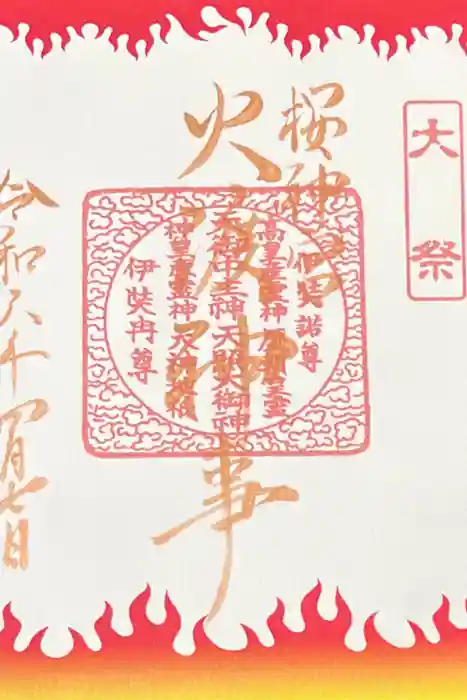 大祭
桜神宮
火渡神事
伊弉諾尊
高皇産霊神 皇霊
天御中主神 天照大御神
神皇産霊神 天神地祇
伊弉冉尊
令和六年四月七日